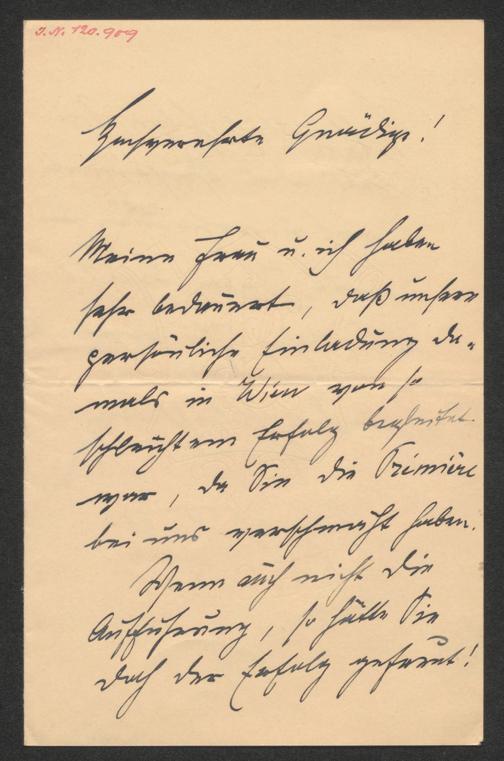 I.N. 120.909
Hochverehrte Gnädige!
Meine Frau u. ich haben
sehr bedauert, daß unsere
persönliche Einladung da-
mals in Wien von so
schlechtem Erfolg begleitet
war, da Sie die Première
bei uns verschmäht haben.
Wenn auch nicht die
Aufführung, so hätte Sie
doch der Erfolg gefreut!